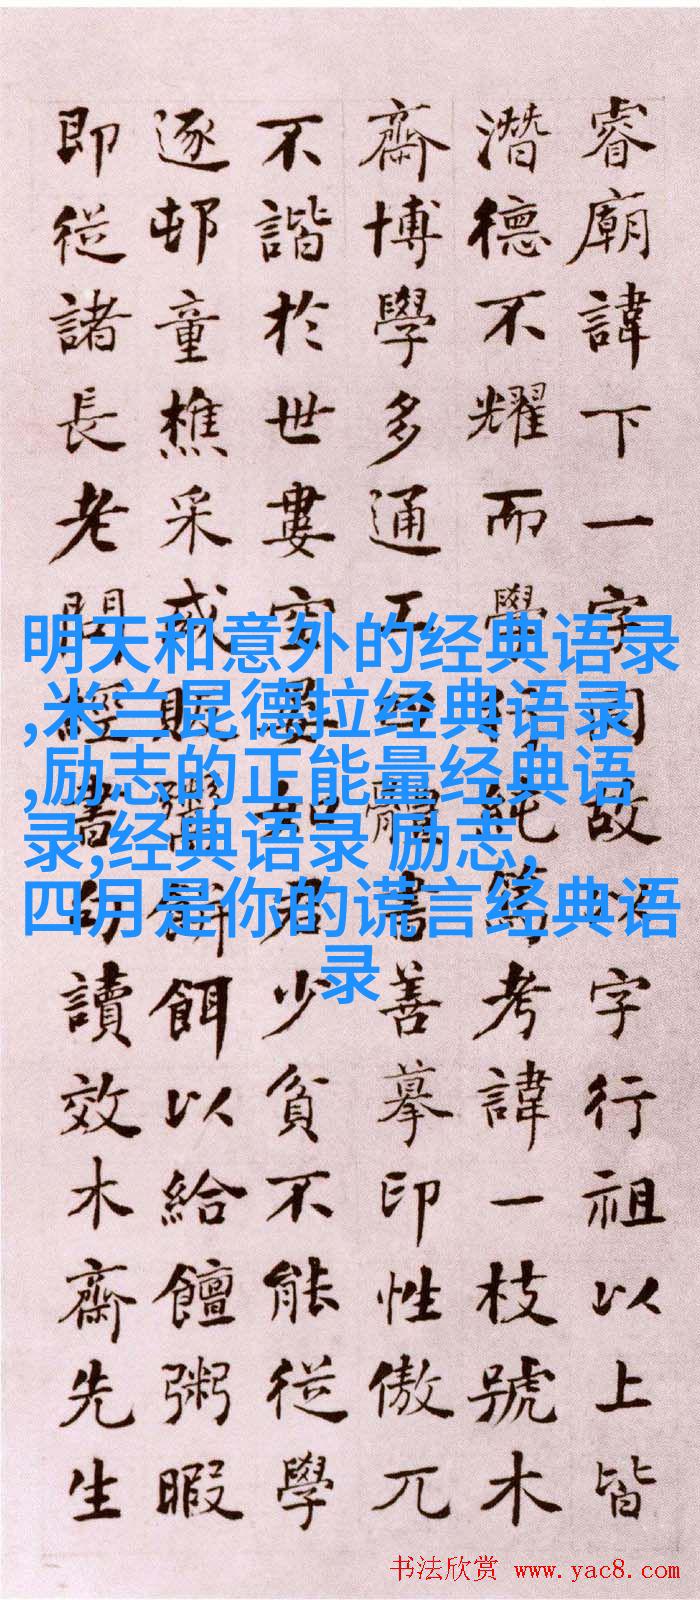 睿廟諱下一字同故以字行祖以上皆
潛德不耀而學行純篤考諱一枝號木
齋博學多通工體書善摹印性傲兀
不諧於世屢空晏如君少貧不能從學
逐邨童樵采或販鬻餅餌以給饘粥暇
即從諸長老問經書句讀效木齋先生
明天和意外的经典语录
,米兰昆德拉经典语录
,励志的正能量经典语
录,经典语录 励志,
四月是你的谎言经典语
录
书法欣赏 www.yac8.com